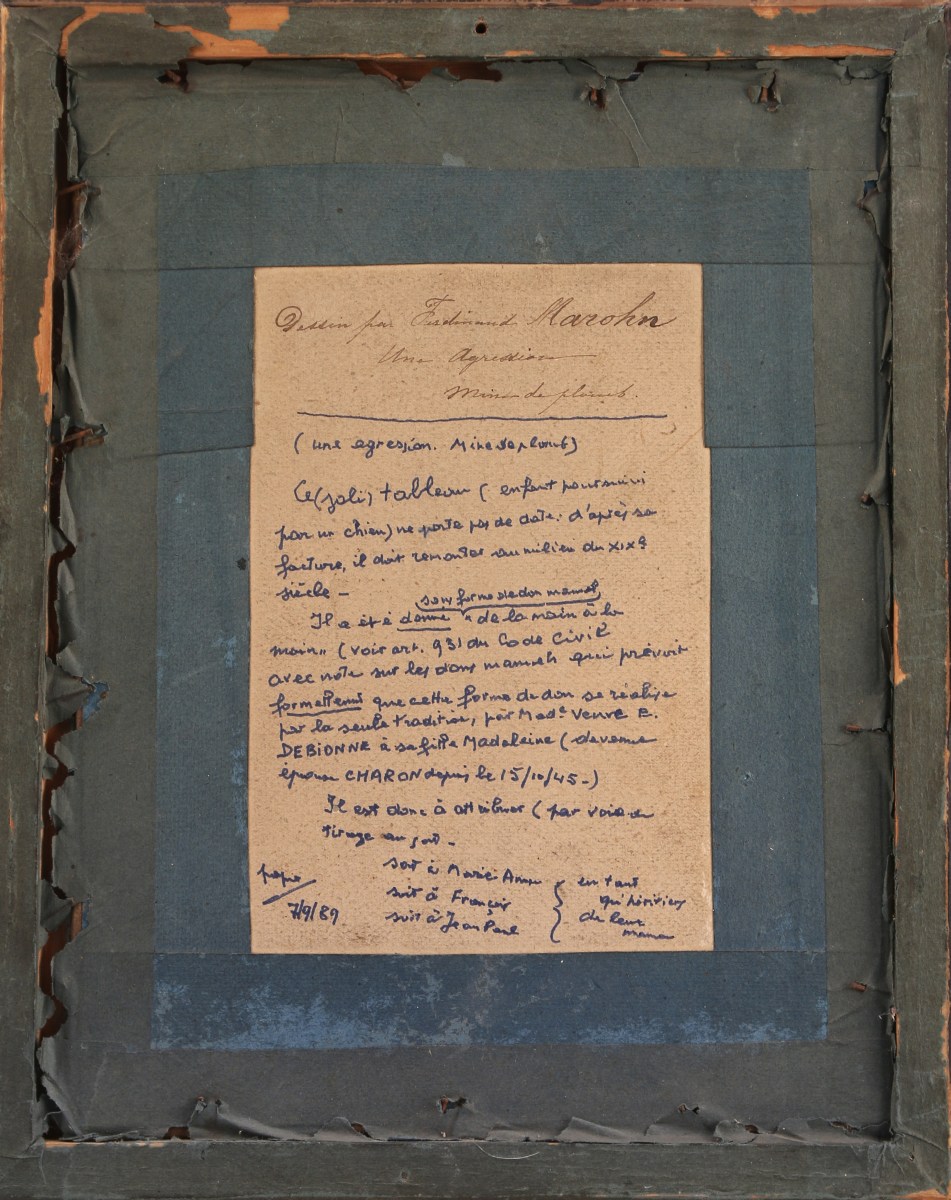 Dessin par Ferdinand Marohn
Une Agression
Mine de plomb.
(une agression. Mine de plomb)
Ce (joli) tableau (enfant poursuivi
par un chien) ne porte pas de date: d'après sa
facture, il doit remonter au milieu du XIXe
siècle -
sous forme de don manuel
Il a été donné "de la main à la
main" (voir art. 931 du Code Civil
avec note sur les dons manuels qui prévoit
formellement que cette forme de don se réalise
par la seule tradition, par Made Veuve E.
DEBIONNE à sa fille Madeleine (devenue
épouse CHARON depuis le 15/10/45-)
Il est donc à attribuer (par voie de
tirage au sort -
soit à Marie-Anne
soit à François
soit à Jean Paul
en tant
qu'héritiers
de leur
maman
papa
7/9/89